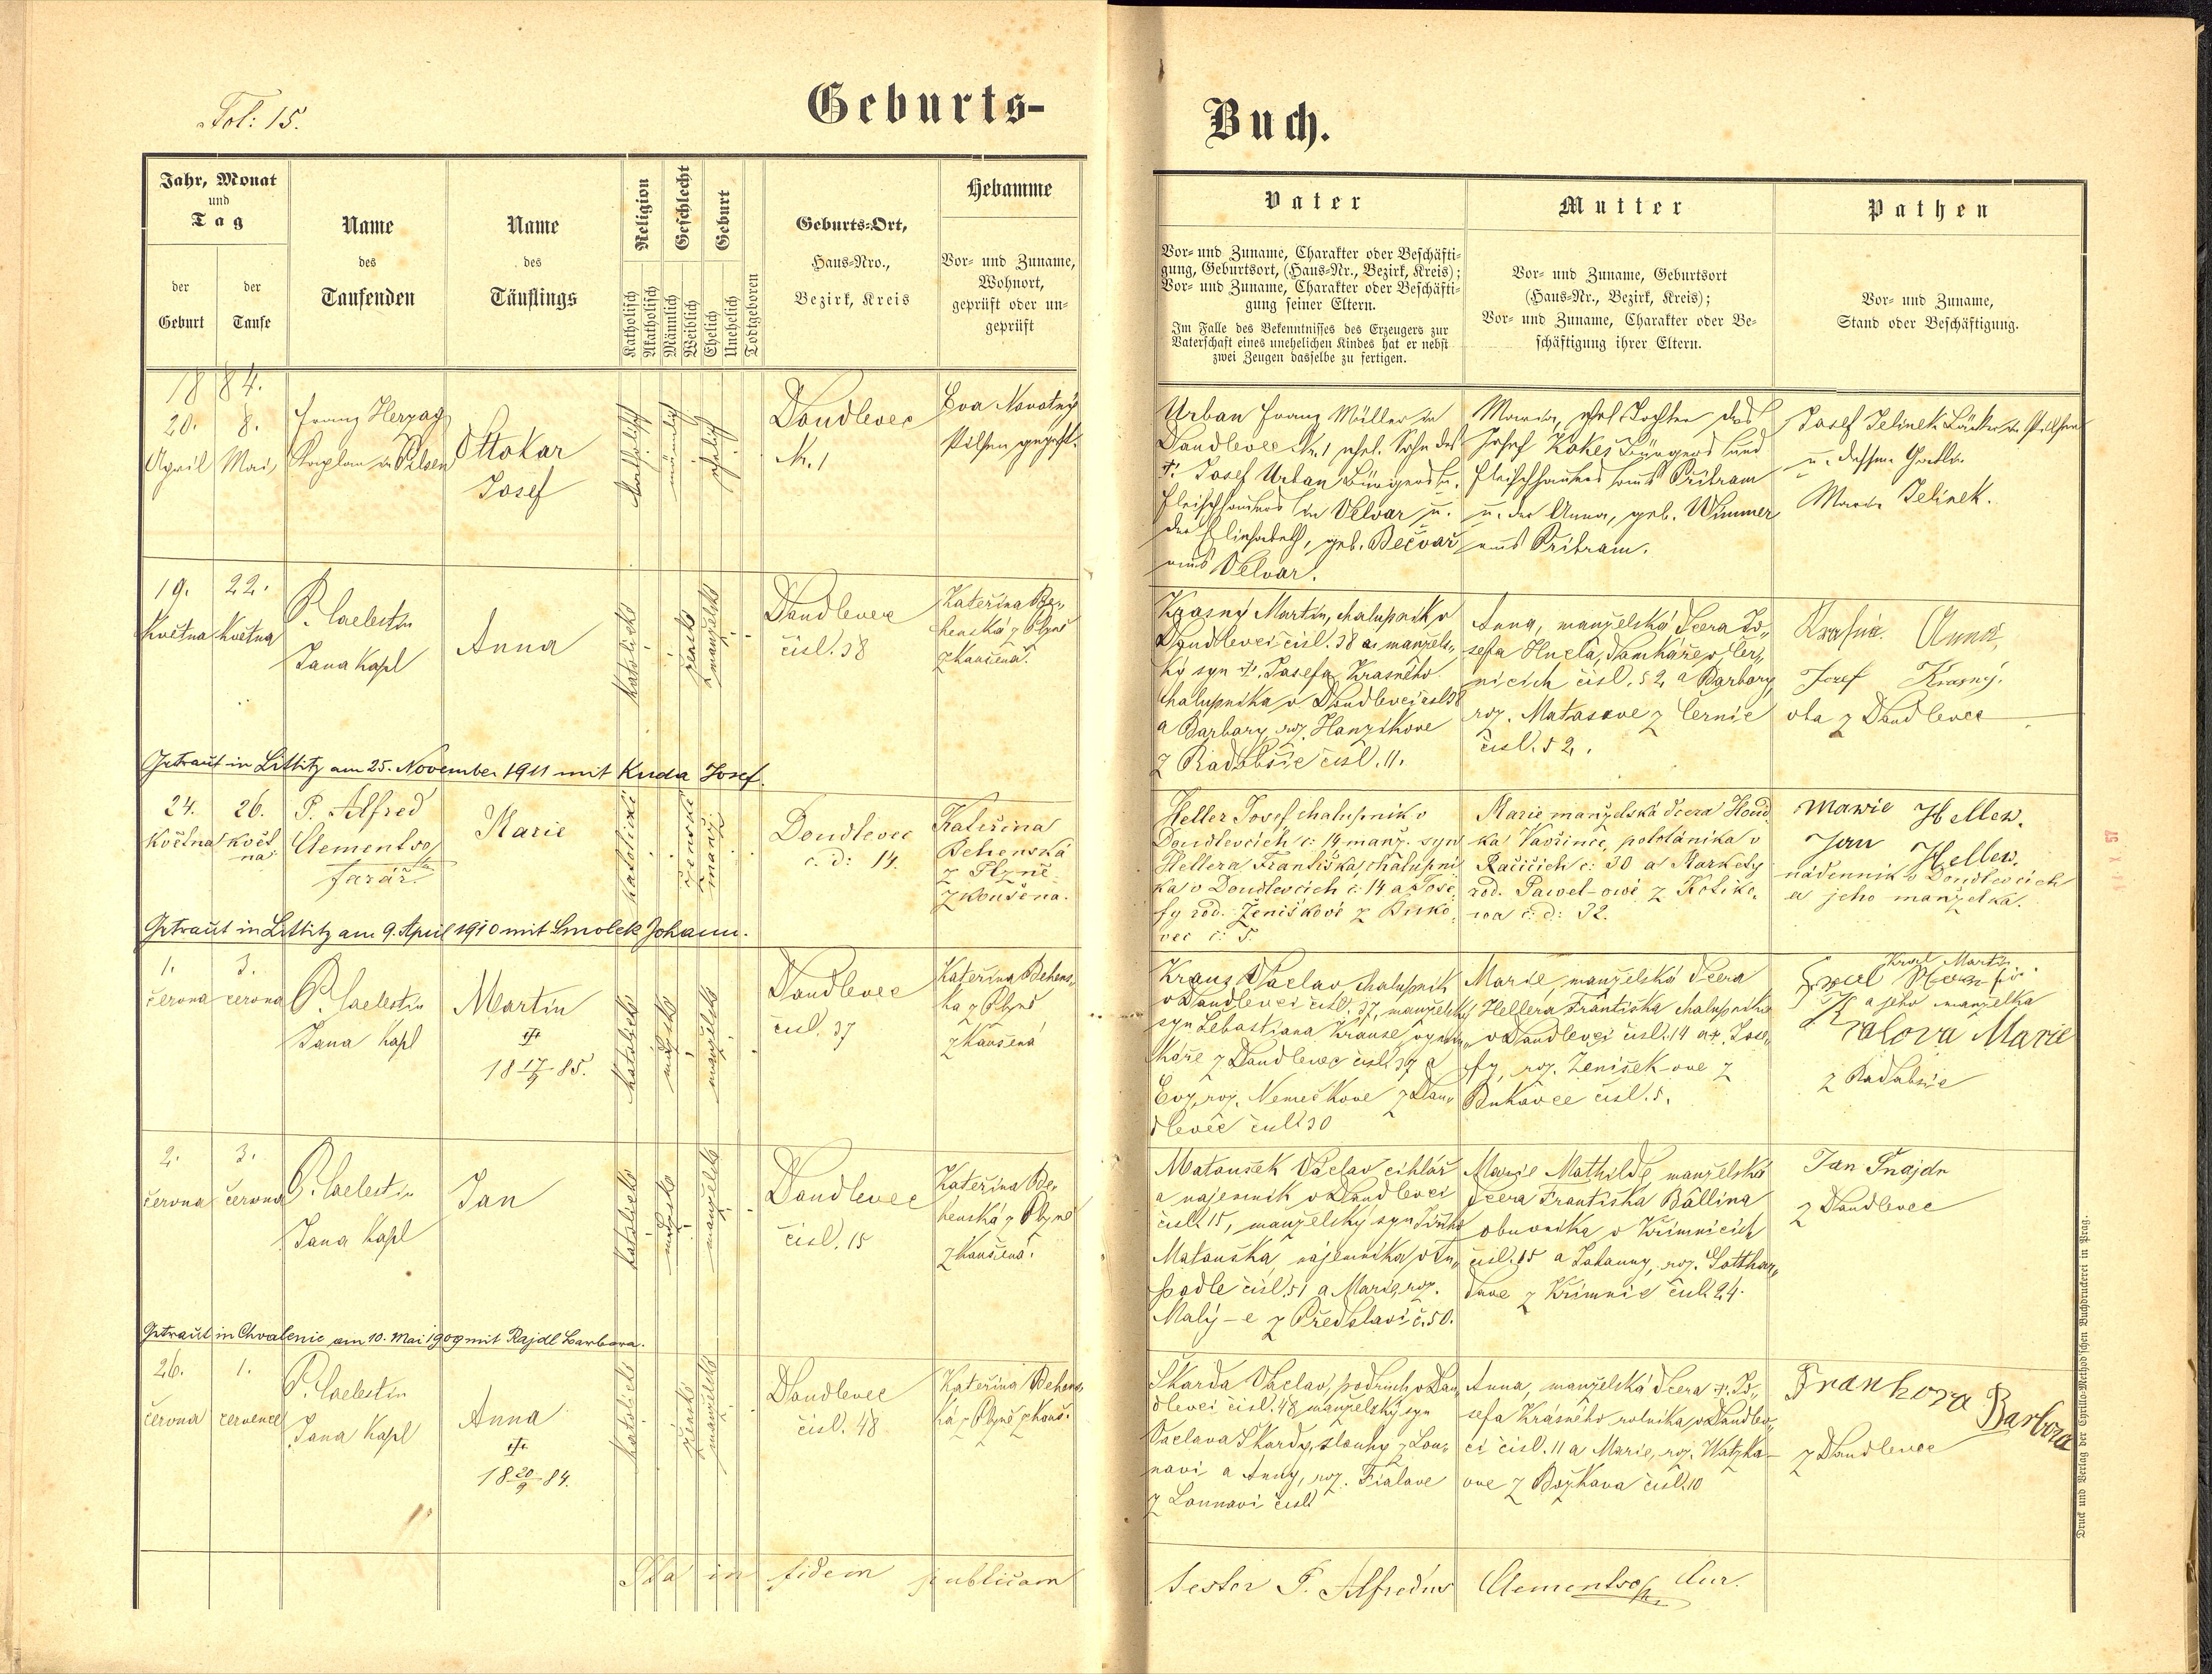 Fol: 15.
Geburts-
Buch.
Jahr, Monat
und
Tag
der
Geburt
der
Taufe
Name
des
Taufenden
Name
des
Täuflings
Religion
Katholisch
Akatholisch
Geschlecht
Männlich
Weiblich
Geburt
Ehelich
Unehelich
Todtgeboren
Geburts-Ort,
Haus-Nro.,
Bezirk, Kreis
Hebamme
Vor- und Zuname,
Wohnort,
geprüft oder un-
geprüft
Vater
Vor- und Zuname, Charakter oder Beschäfti-
gung, Geburtsort, (Haus-Nr., Bezirk, Kreis);
Vor- und Zuname, Charakter oder Beschäfti-
gung seiner Eltern.
Im Falle des Bekenntnisses des Erzeugers zur
Vaterschaft eines unehelichen Kindes hat er nebst
zwei Zeugen dasselbe zu fertigen.
Mutter
Vor- und Zuname, Geburtsort
(Haus-Nr., Bezirk, Kreis);
Vor- und Zuname, Charakter oder Be-
schäftigung ihrer Eltern.
Pathen
Vor- und Zuname,
Stand oder Beschäftigung.
1884.
20.
April
8.
Mai
Franz Herzog
Kaplan in Pilsen
Ottokar
Josef
katholisch
männlich
ehelich
Doudlevec
Nr. 1
Eva Novotný
Pilsen geprft.
Urban Franz Müller in
Doudlevec Nr. 1 ehel. Sohn des
†. Josef Urban Bürgers u.
Fleischhauers in Velvar u.
der Elisabeth, geb. Bečvař
aus Velvar.
Maria, ehel. Tochter des
Josef Kokeš Bürgers und
Fleischhauers aus Přibram
u. der Anna, geb. Wimmer
aus Přibram.
Josef Jelinek Bäcker in Pilsen
u. dessen Gattin
Maria Jelinek.
19.
Května
22.
Května
P. Caelestin
Jana Kapl
Anna
katolické
ženské
manželské
Doudlevec
čisl. 38
Kateřina Be„
henská z Plzně
zkoušená.
Krasný Martin, chalupník v
Doudlevci čisl. 38 a manžels„
ký syn †. Josefa Krasného
chalupníka v Doudlevci čisl 38
a Barbary, roz. Hanzíkove
z Radobšic čisl. 11.
Anna, manželská dcera Jo„
sefa Hucla, domkáře v Čer„
nicích čisl. 52 a Barbory,
roz. Matasove z Černic
čisl. 52.
Anna,
Josef Krasný.
oba z Doudlevec
Getraut in Littitz am 25. November 1911 mit Kuda Josef.
24.
Května
26.
květ
na
P. Alfred
Clementso
farář.
Marie
katolické
ženské
manž.
Doudlevec
č. d: 14.
Kateřina
Behenská
z Plzně
zkoušena.
Heller Josef chalupník v
Doudlevcích č: 14 manž. syn
Hellera Františka, chalupní
ka v Doudlevcích č: 14 a Jose
fy rod. Ženíškové z Buko
vec č: 5.
Marie manželská dcera Houd
ka Vavřince, pololáníka v
Račicích č: 30 a Markety
rod. Pawel-ové z Kotiko
va č: d: 32.
Marie Heller.
Jan Heller.
nádenník v Doudlevcích
a jeho manželka.
Getraut in Littitz am 9. April 1910 mit Smolek Johann.
1.
června
3.
června
P. Caelestin
Jana Kapl
Martin
†
18 17/9 85.
katolické
mužské
manželské
Doudlevec
čisl. 37
Kateřina Behens„
ka z Plzně
zkoušená
Kraus Václav chalupník
v Doudlevci čisl. 37, manželský
syn Sebastiana Krause
z Doudlevec čisl 37 a
Evy, roz. Nemečkove z Dou„
dlevec čisl 30
Marie, manželská dcera
Hellera Františka chalupníka
v Doudlevci čisl. 14 a †. Jose„
fy, roz. Zenišek-ove z
Bukovce čisl. 5.
Kral Martin
a jeho manželka
Kralova Marie
z Radobšic
2.
června
3.
června
P. Caelestin
Jana Kapl
Jan
katolické
mužské
manželské
Doudlevec
čisl. 15
Kateřina Be„
henská z Plzně
zkoušená.
Matoušek Václav cihlář
a nájemník v Doudlevci
čisl. 15, manželský syn
Matouška, nájemníka v
čisl. 51 a Marie, roz.
Malý-e z Předslavi č. 50.
Marie Mathilde, manželská
dcera Františka Ballina
obuvníka v Křimnicích
čisl. 15 a Johanny, roz. Gotthar„
dove z Křimnic čisl. 24.
Jan Šnajdr
z Doudlevec
Getraut in Chvalenic am 10. Mai 1909 mit Rajdl Barbara.
26.
června
1.
července
P. Caelestin
Jana Kapl
Anna
†
18 20/9 84.
katolické
ženské
manželské
Doudlevec
čisl. 48
Kateřina Behens
ká z Plzně zkouš.
Škarda Václav, podruh v Dou
dlevci čisl. 48 manželský syn
Vaclava Škardy, slouhy z Lou„
navi a Anny, roz. Fialove
z Lounavi čisl
Anna, manželská dcera †. Jo„
sefa Krásného rolníka v Doudlev„
ci čisl. 11 a Marie, roz. Watzka-
ove z Božkova čisl. 10
Frankova Barbora
z Doudlevec
Ita in fidem publicam
testor P. Alfredus Clementso Cur.
Druck und Verlag der Cyrillo-Method'schen Buchdruckerei in Prag.